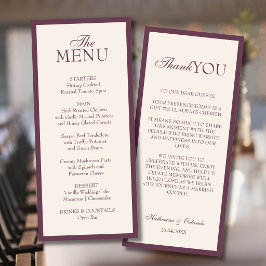 The
MENU
STARTERS
Shrimp Cocktail
Roasted Tomato Soup
MAIN
Herb Roasted Chicken
with Garlic Mashed Potatoes
and Honey Glazed Carrots
Seared Beef Tenderloin
with Truffle Potatoes
and Green Beans
Creamy Mushroom Pasta
with Spinach
and Parmesan
DESSERT
Vanilla Wedding Cake
Macarons | Cheesecake
DRINKS & COCKTAILS
Open Bar
Thank YOU
TO OUR DEAR GUESTS,
YOUR PRESENCE TODAY IS
A GIFT WE'LL ALWAYS CHERISH
IT MEANS SO MUCH TO SHARE
THIS MOMENT WITH THE
PEOPLE WHO BRING WARMTH
AND HAPPINESS INTO OUR
LIVES.
WE INVITE YOU TO
CELEBRATE WITH US, ENJOY
THE EVENING, AND HELP US
CREATE MEMORIES WE'LL
HOLD CLOSE AS WE BEGIN
OUR JOURNEY AS A MARRIED
COUPLE.
Katherina & Orlando